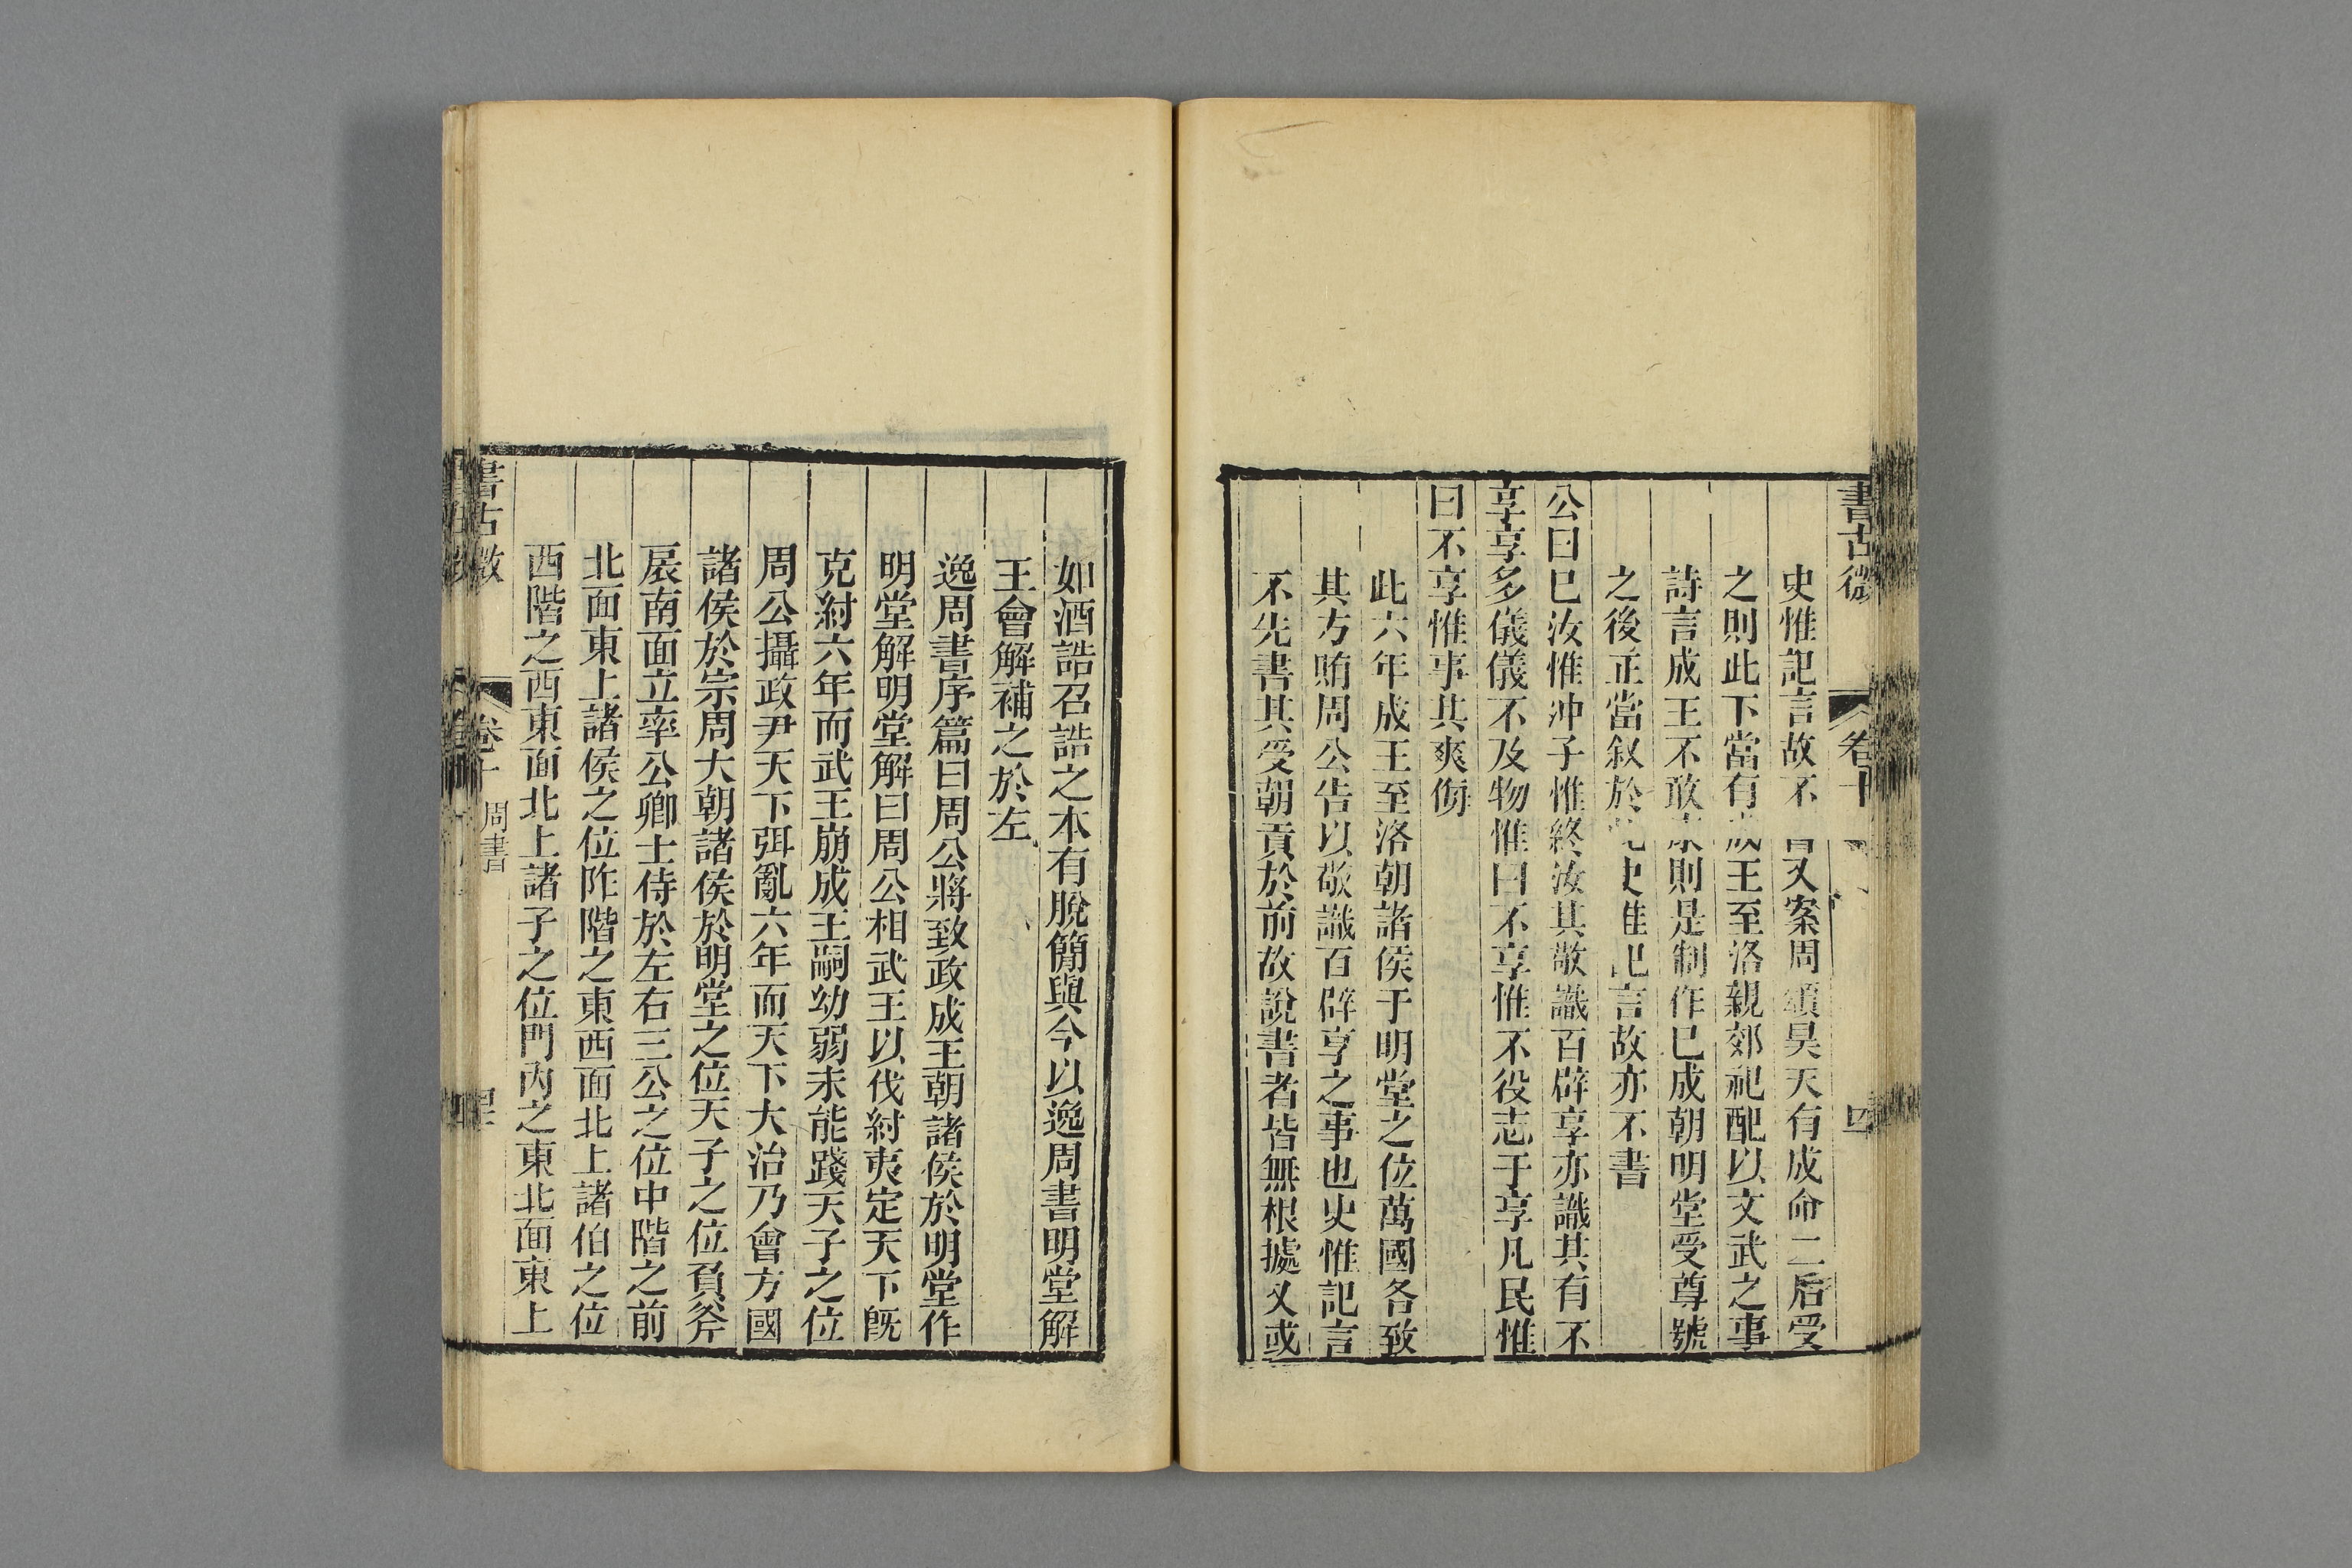 書古微
卷十
四
史惟記言故不書又案周頌昊天有成命二后受
之則此下當有成王至洛親郊祀配以文武之事
詩言成王不敢康則是制作已成朝明堂受尊號
之後正當敘於此史惟記言故亦不書
公曰已汝惟沖子惟終汝其敬識百辟享亦識其有不
享享多儀儀不及物惟曰不享惟不役志于享凡民惟
曰不享惟事其爽侮
此六年成王至洛朝諸侯于明堂之位萬國各致
其方賄周公告以敬識百辟享之事也史惟記言
不先書其受朝貢於前故說書者皆無根據又或
如酒誥召誥之本有脫簡與今以逸周書明堂解
王會解補之於左
逸周書序篇曰周公將致政成王朝諸侯於明堂作
明堂解明堂解曰周公相武王以伐紂夷定天下旣
克紂六年而武王崩成王嗣幼弱未能踐天子之位
周公攝政尹天下弭亂六年而天下大治乃會方國
諸侯於宗周大朝諸侯於明堂之位天子之位負斧
扆南面立率公卿士侍於左右三公之位中階之前
北面東上諸侯之位阼階之東西面北上諸伯之位
西階之西東面北上諸子之位門內之東北面東上
書古微
卷十
周書